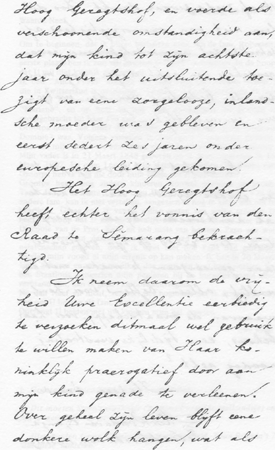 Hoog Geregtshof, en voerde als
verschoonende omstandigheid aan,
dat mijn kind tot zijn achtste
jaar onder het uitsluitende toe-
zigt van eene zorgelooze, inland-
sche moeder was gebleven en
eerst sedert zes jaren onder
europesche leiding gekomen.
Het Hoog Geregtshof
heeft echter het vonnis van den
Raad te Semarang bekrach-
tigd.
Ik neem daarom de vrij-
heid Uwe Excellentie eerbiedig
te verzoeken ditmaal wel gebruik
te willen maken van Haar ko-
ninklijk praerogatief door aan
mijn kind genade te verleenen.
Over geheel zijn leven blijft eene
donkere wolk hangen, wat als